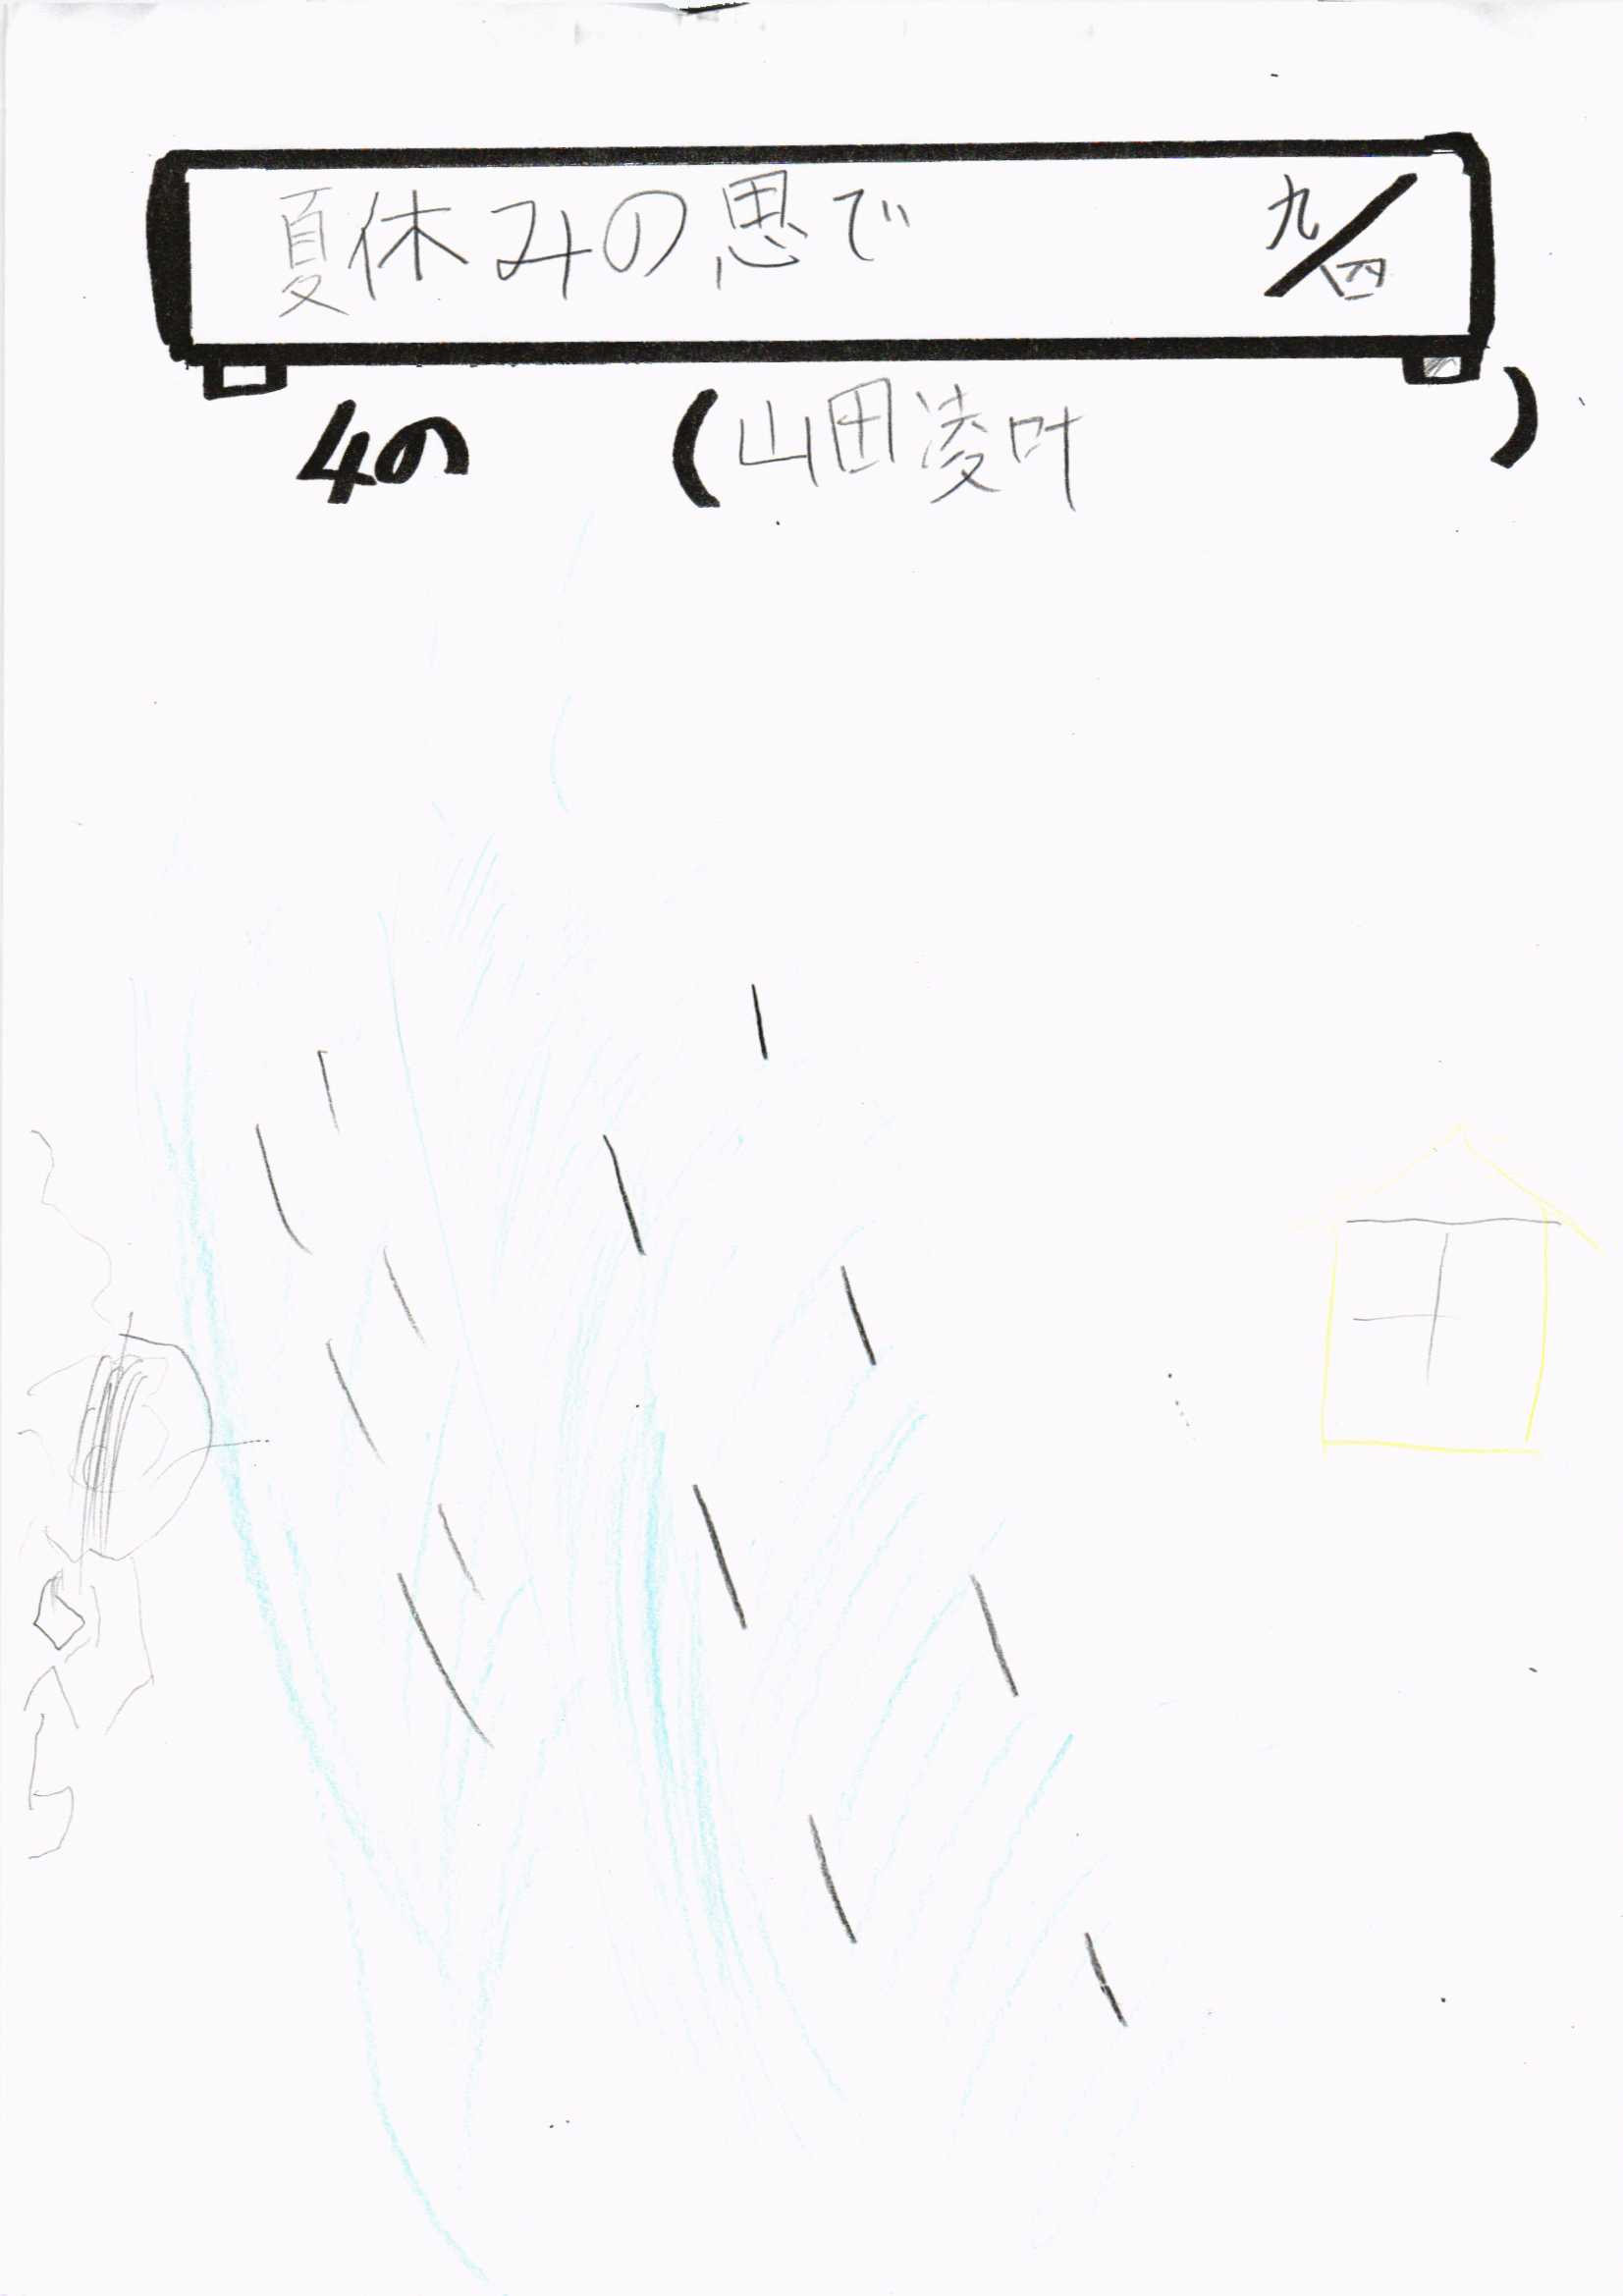 夏休みの思で 九/四
4の (山田凌叶)